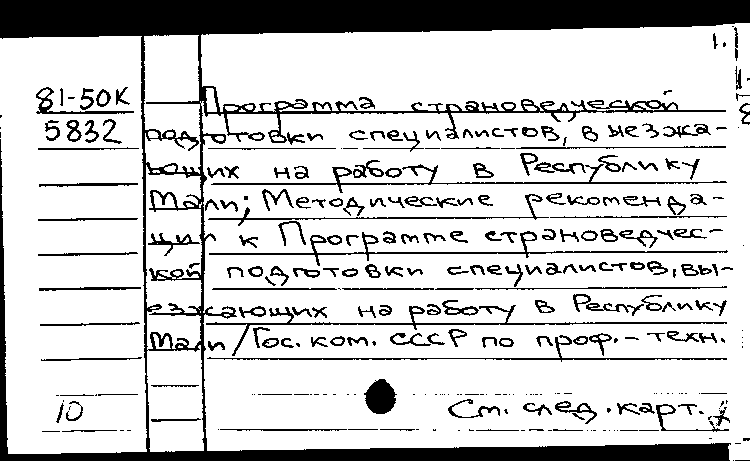 1.
81-50К Программа страноведческой
5832 подготовки специалистов, выезжа-
ющих на работу в Республику
Мали; Методические рекоменда-
ции к Программе страноведчес-
кой подготовки специалистов, вы-
езжающих на работу в Республику
Мали/Гос. ком. СССР по проф.-техн.
10 См. след. карт.